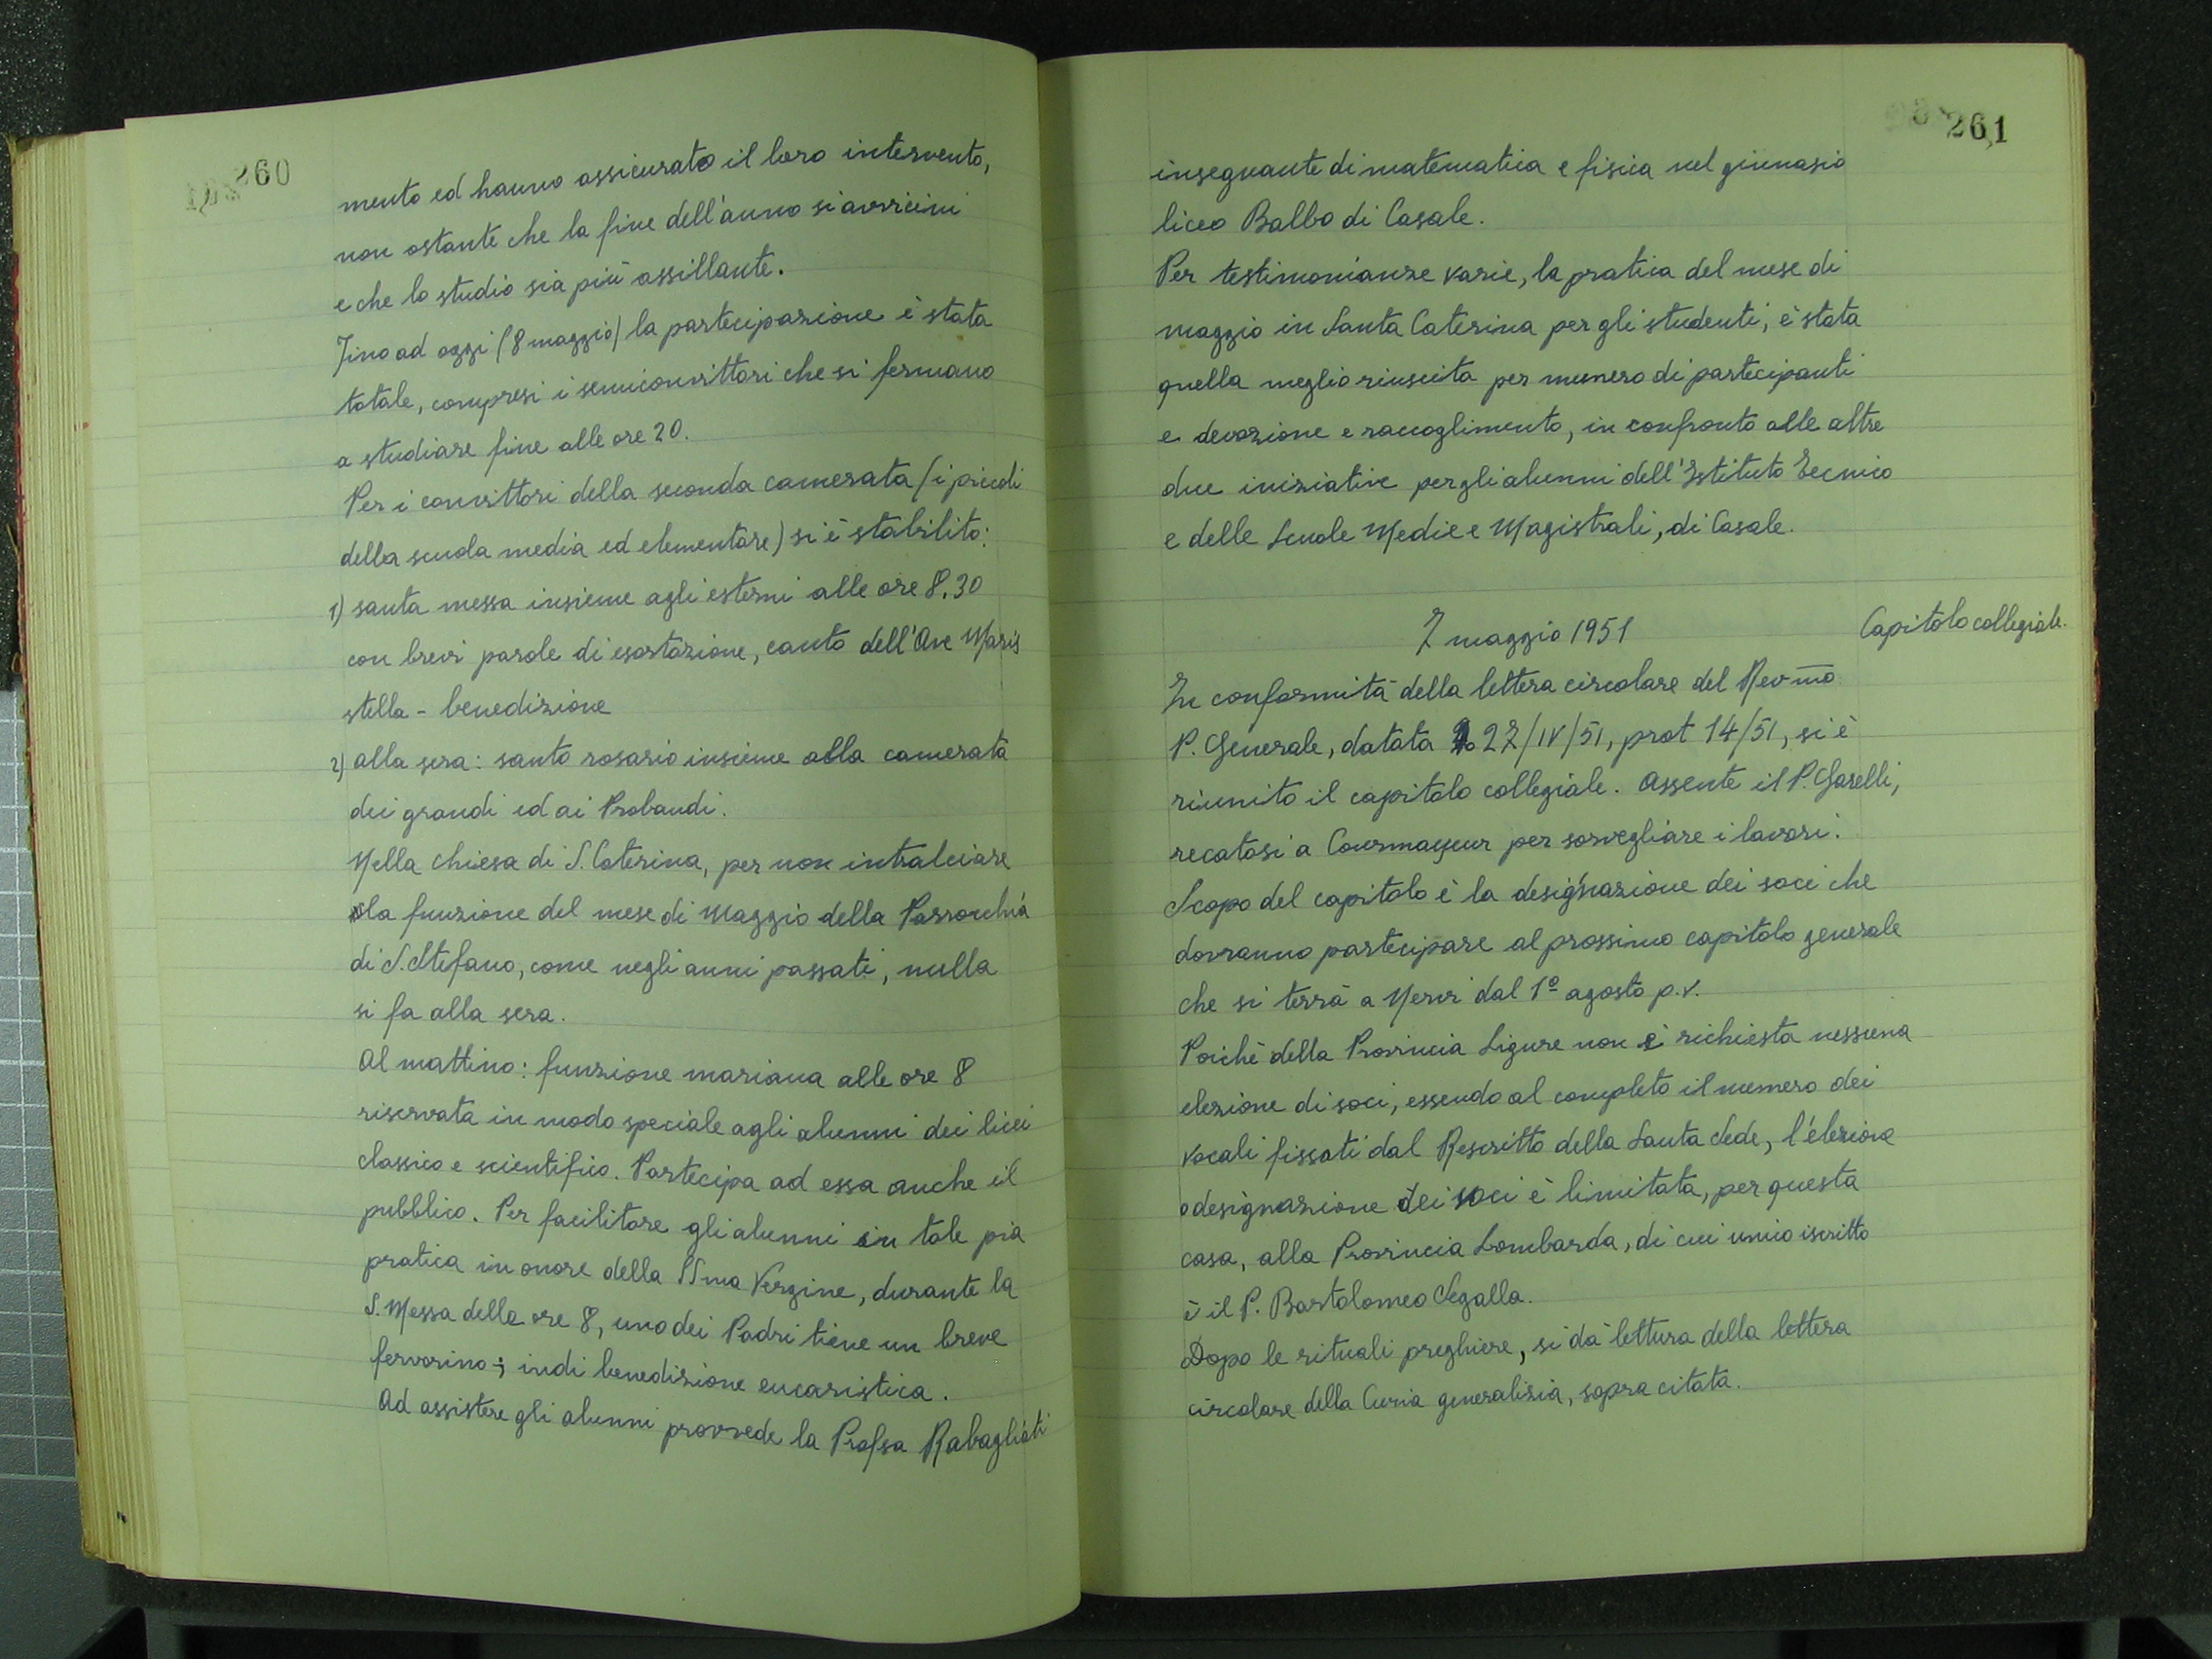 260
mento ed hanno assicurato il loro intervento,
non ostante che la fine dell'anno si avvicini
e che lo studio sia più assillante.
Fino ad oggi (8 maggio) la partecipazione è stata
totale, compresi i semiconvittori che si fermano
a studiare fine alle ore 20.
Per i convittori della seconda camerata (i piccoli
della scuola media ed elementare) si è stabilito:
1) santa messa insieme agli esterni alle ore 8.30
con brevi parole di esortazione, canto dell'Ave Maris
stella - benedizione
2) alla sera: santo rosario insieme alla camerata
dei grandi ed ai Probandi.
Nella chiesa di S. Caterina, per non intralciare
la funzione del mese di Maggio della Parrocchia
di S. Stefano, come negli anni passati, nulla
si fa alla sera.
Al mattino: funzione mariana alle ore 8
riservata in modo speciale agli alunni dei licei
classico e scientifico. Partecipa ad essa anche il
pubblico. Per facilitare gli alunni in tale pia
pratica in onore della SSma Vergine, durante la
S. Messa delle ore 8, uno dei Padri tiene un breve
fervorino; indi benedizione eucaristica.
Ad assistere gli alunni provvede la Profsa Rabagliati
261
insegnante di matematica e fisica nel ginnasio
liceo Balbo di Casale.
Per testimonianze varie, la pratica del mese di
maggio in Santa Caterina per gli studenti, è stata
quella meglio riuscita per numero di partecipanti
e devozione e raccoglimento, in confronto alle altre
due iniziative per gli alunni dell'Istituto Tecnico
e delle Scuole Medie e Magistrali, di Casale.
7 maggio 1951
Capitolo collegiale.
In conformità della lettera circolare del Rev-mo
P. Generale, datata 27/IV/51, prot 14/51, si è
riunito il capitolo collegiale. Assente il P. Garelli,
recatosi a Courmayeur per sorvegliare i lavori.
Scopo del capitolo è la designazione dei soci che
dovranno partecipare al prossimo capitolo generale
che si terrà a Nervi dal 1º agosto p.v.
Poichè della Provincia Ligure non è richiesta nessuna
elezione di soci, essendo al completo il numero dei
vocali fissati dal Rescritto della Santa Sede, l'elezione
o designazione dei soci è limitata, per questa
casa, alla Provincia Lombarda, di cui unico iscritto
è il P. Bartolomeo Segalla.
Dopo le rituali preghiere, si dà lettura della lettera
circolare della Curia generalizia, sopra citata.